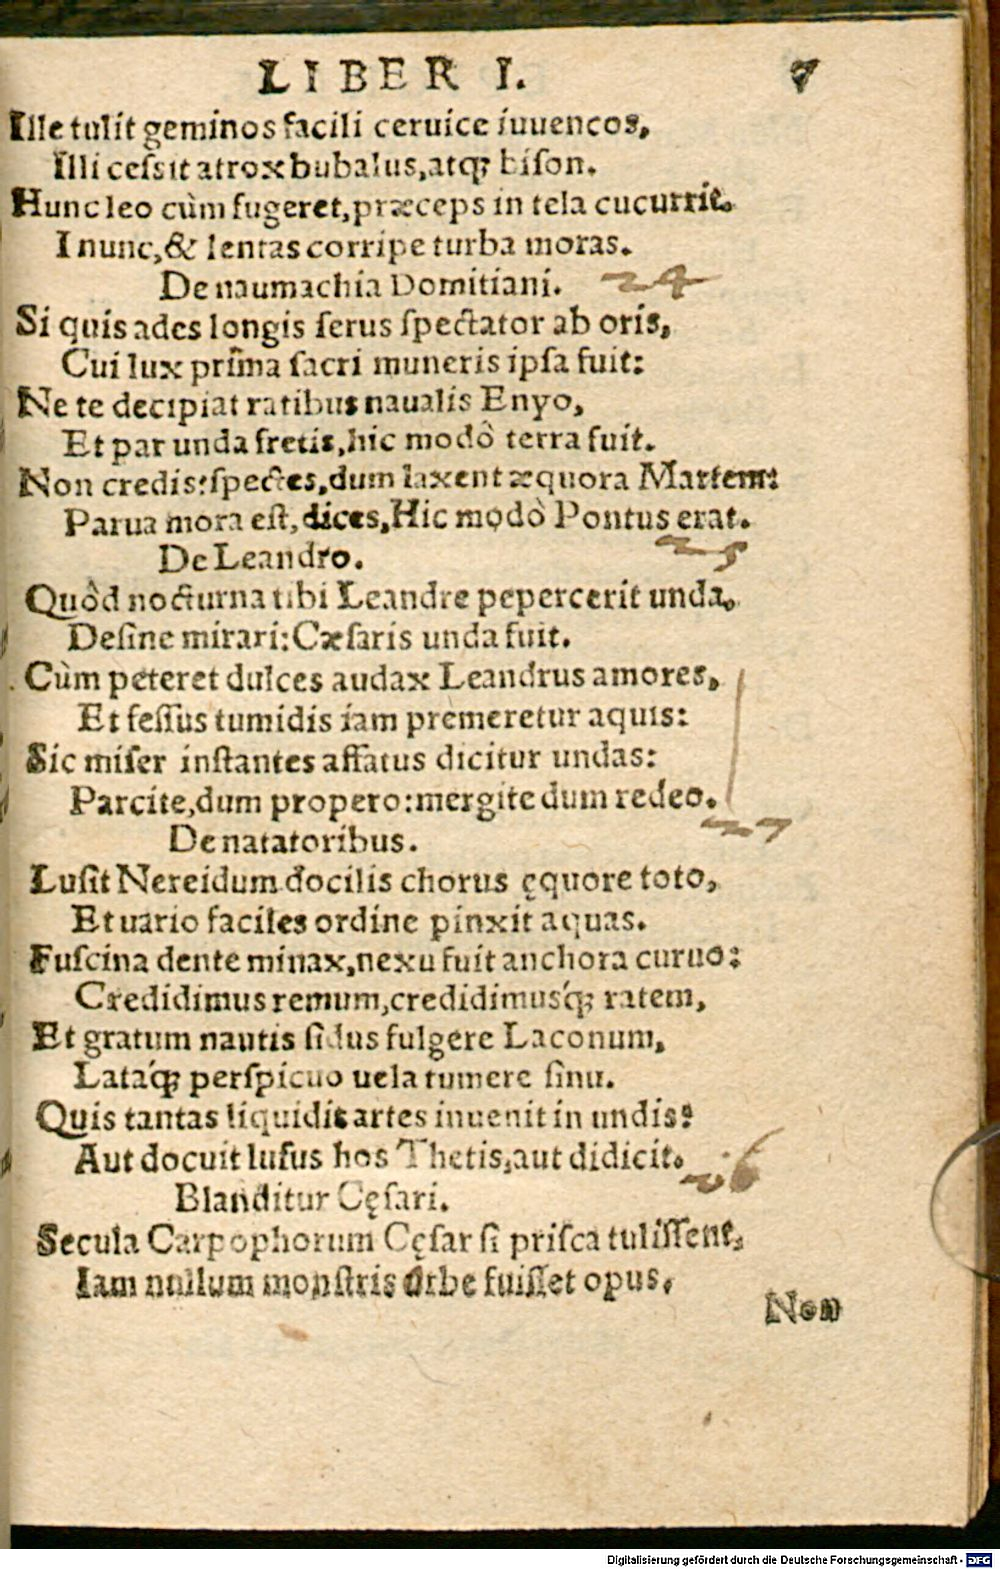 LIBER I. 7
Ille tulit geminos facili ceruice iuuencos,
Illi cessit atrox bubalus, atq; bison.
Hunc leo cùm fugeret, præceps in tela cucurrit.
I nunc, & lentas corripe turba moras.
De naumachia Domitiani. 24
Si quis ades longis serus spectator ab oris,
Cui lux prima sacri muneris ipsa fuit:
Ne te decipiat ratibus naualis Enyo,
Et par unda fretis, hic modò terra fuit.
Non credis: spectes, dum laxent æquora Martem:
Parua mora est, dices, Hic modò Pontus erat.
De Leandro. 25
Quòd nocturna tibi Leandre pepercerit unda.
Desine mirari: Cæsaris unda fuit.
Cùm peteret dulces audax Leandrus amores,
Et fessus tumidis iam premeretur aquis:
Sic miser instantes affatus dicitur undas:
Parcite, dum propero: mergite dum redeo.
De natatoribus. 27
Lusit Nereidum docilis chorus ęquore toto,
Et uario faciles ordine pinxit aquas.
Fuscina dente minax, nexu fuit anchora curuo:
Credidimus remum, credidimusq́; ratem,
Et gratum nautis sidus fulgere Laconum,
Lataq́; perspicuo uela tumere sinu.
Quis tantas liquidis artes inuenit in undis?
Aut docuit lusus hos Thetis, aut didicit.
Blanditur Cęsari. 26
Secula Carpophorum Cęsar si prisca tulissent,
Iam nullum monstris orbe fuisset opus.
Non
Digitalisierung gefördert durch die Deutsche Forschungsgemeinschaft - DFG